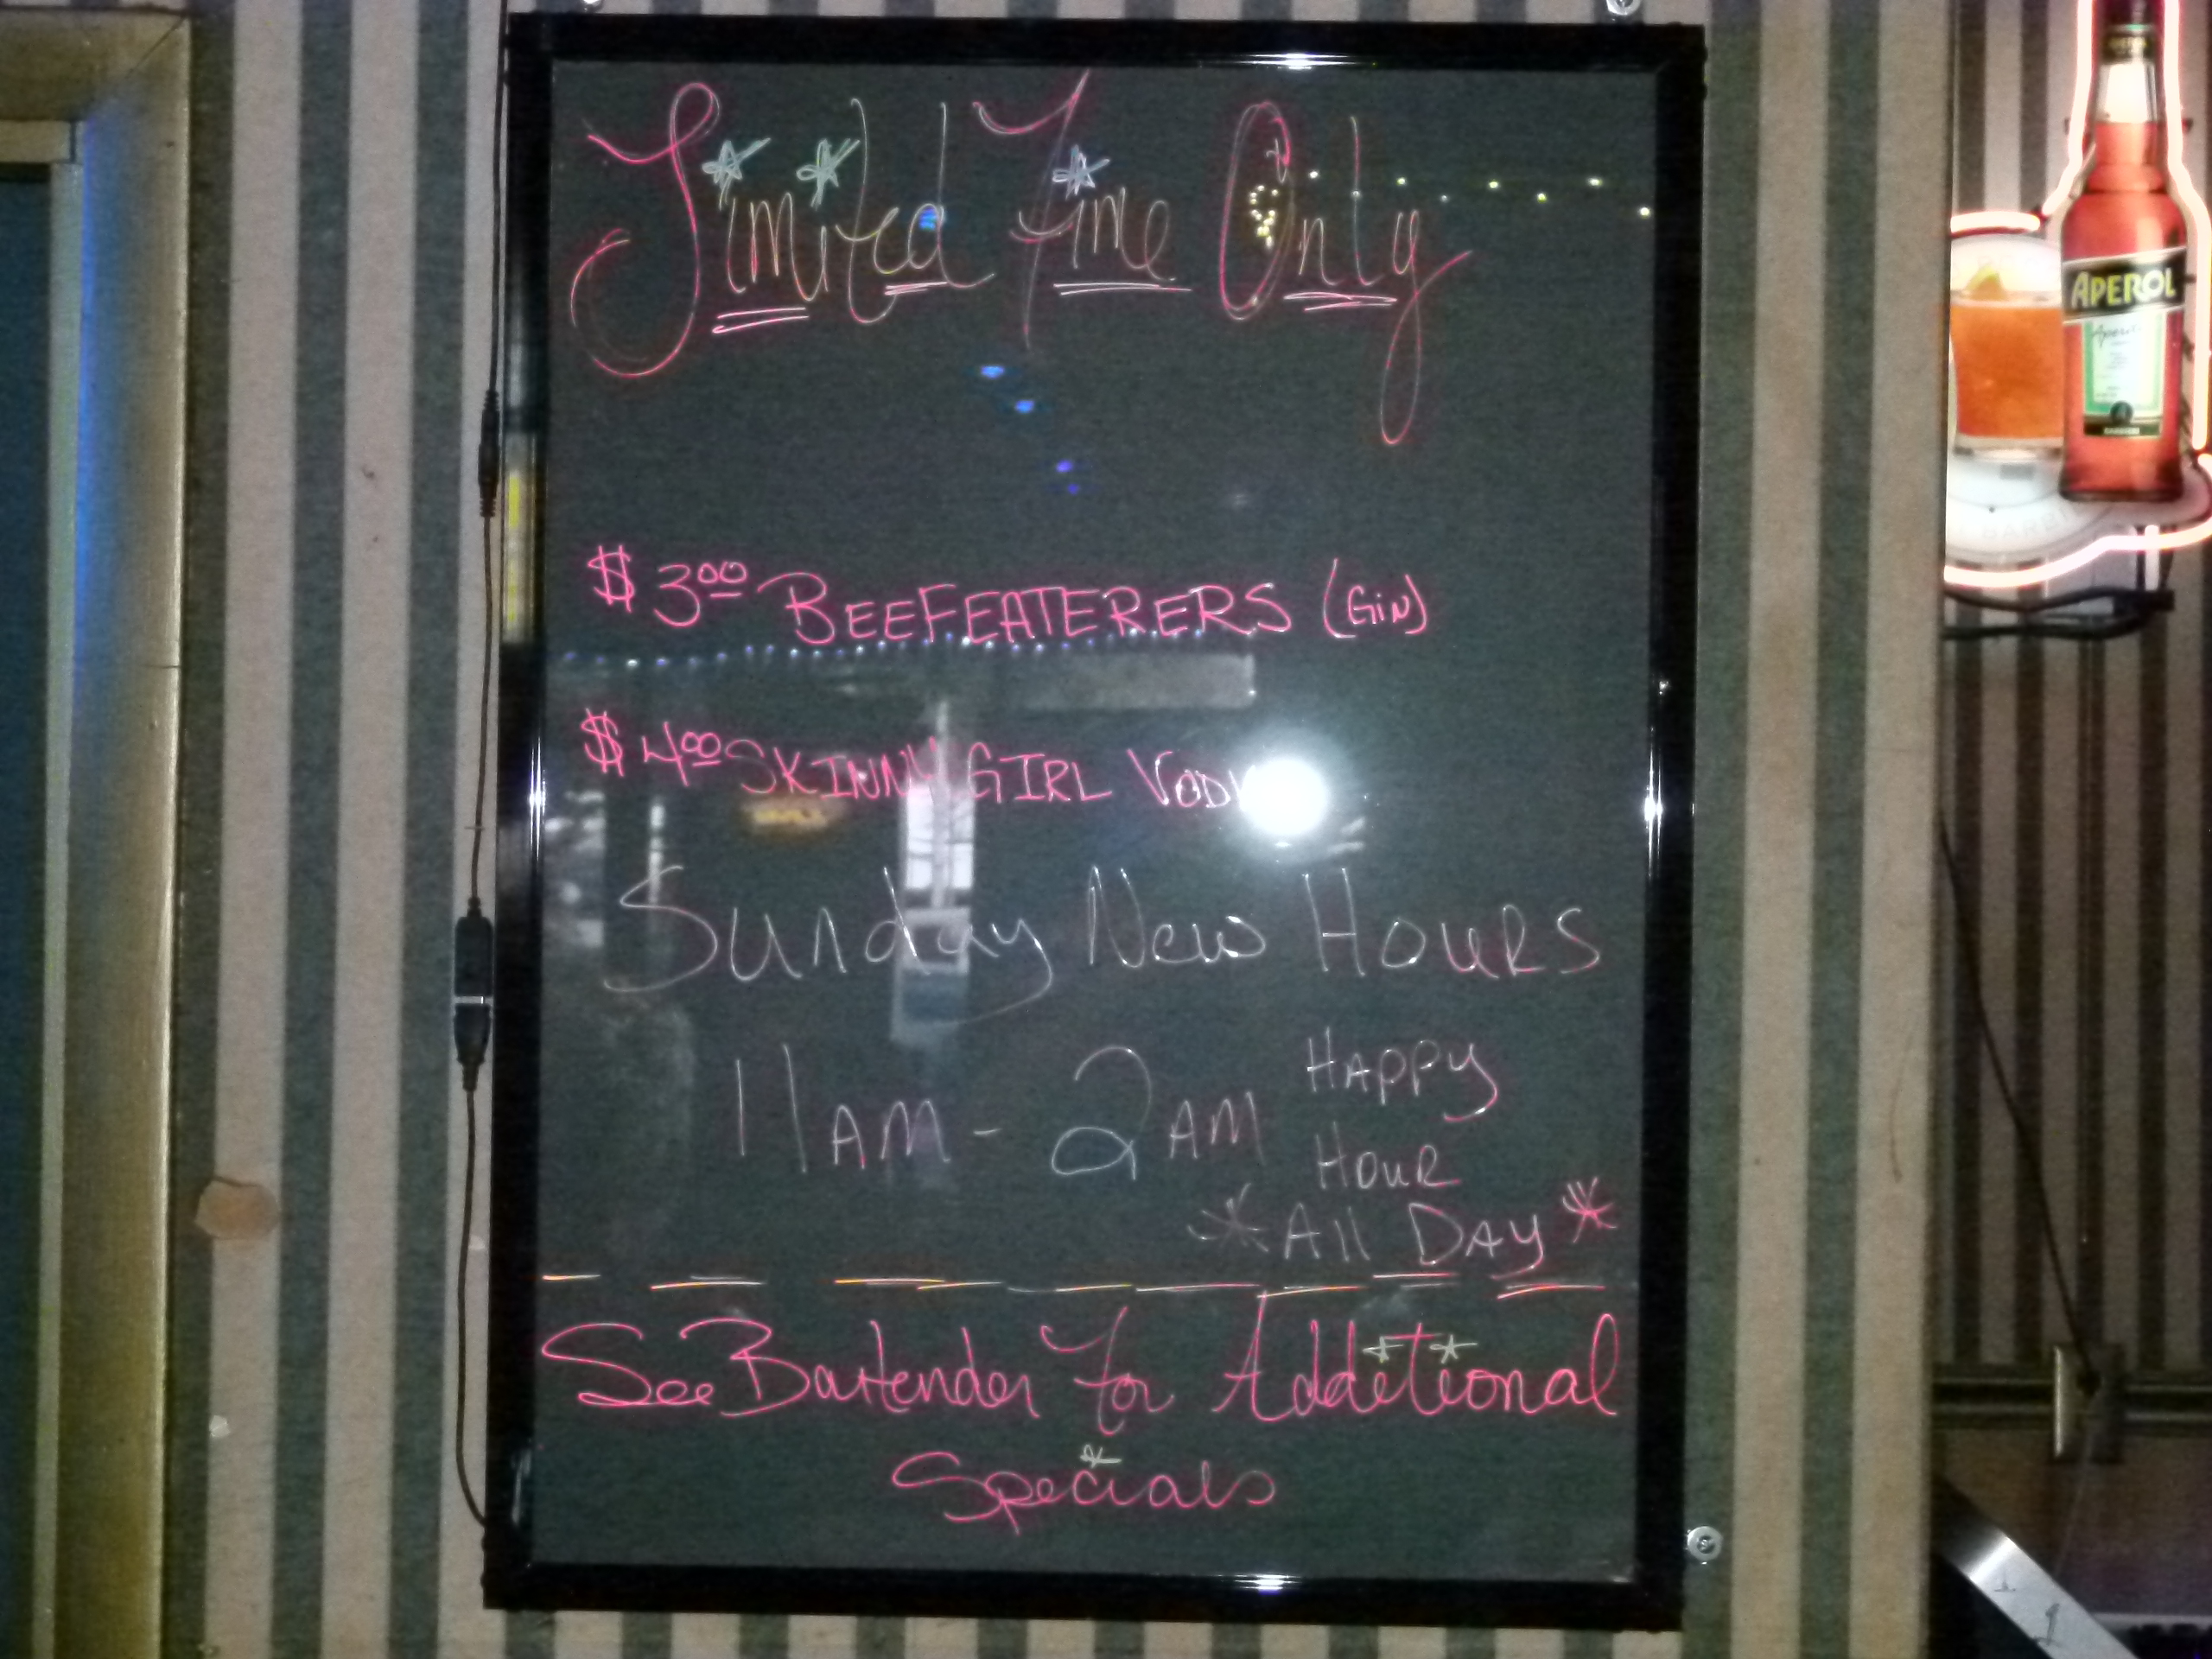 Limited Time Only
$3.00 BEEFEATERERS (GiN)
$4.00 SKINNY GIRL
Sunday New Hours
11 AM - 2 AM
HAPPY
HOUR
*All DAY*
See Bartender For Additional
Specials
APEROL
Aperol